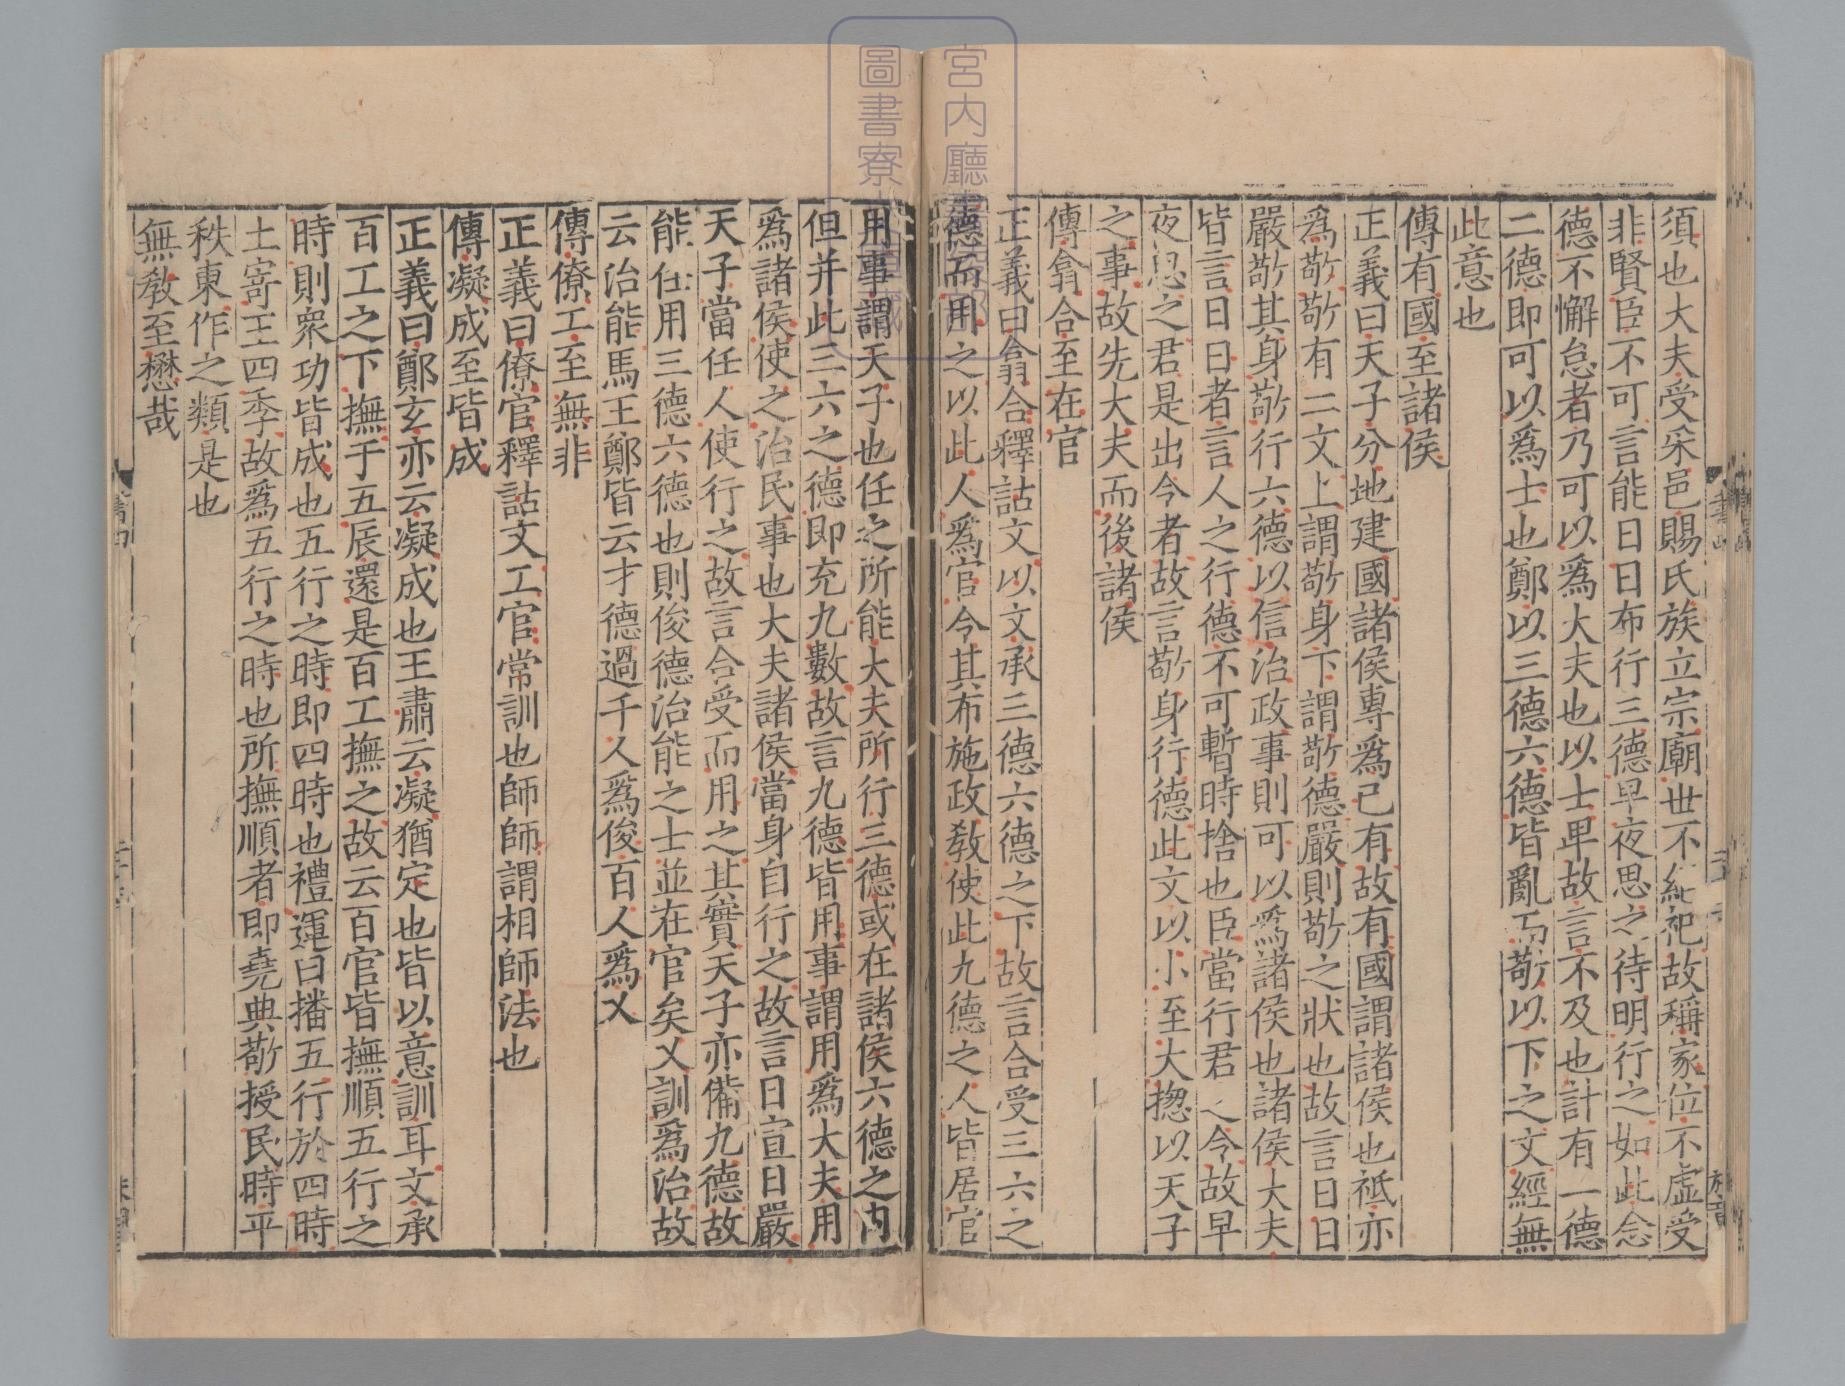 須也大夫受采邑賜氏族立宗廟世不絶祀故稱家位不虛受
非賢臣不可言能日日布行三德早夜思之待明行之如此念
德不懈怠者乃可以爲大夫也以士卑故言不及也計有一德
二德即可以爲士也鄭以三德六德皆亂而敬以下之文經無
此意也
傳有國至諸侯
正義曰天子分地建國諸侯專爲己有故有國謂諸侯也祗亦
爲敬敬有二文上謂敬身下謂敬德嚴則敬之狀也故言日日
嚴敬其身敬行六德以信治政事則可以爲諸侯也諸侯大夫
皆言日日者言人之行德不可暫時捨也臣當行君之令故早
夜思之君是出令者故言敬身行德此文以小至大揔以天子
之事故先大夫而後諸侯
傳翕合至在官
正義曰翕合釋詁文以文承三德六德之下故言合受三六之
德而用之以此人爲官令其布施政教使此九德之人皆居官
用事謂天子也任之所能大夫所行三德或在諸侯六德之內
但并此三六之德即充九數故言九德皆用事謂用爲大夫用
爲諸侯使之治民事也大夫諸侯當身自行之故言日宣日嚴
天子當任人使行之故言合受而用之其實天子亦備九德故
能任用三德六德也則俊德治能之士並在官矣乂訓爲治故
云治能馬王鄭皆云才德過千人爲俊百人爲乂
傳僚工至無非
正義曰僚官釋詁文工官常訓也師師謂相師法也
傳凝成至皆成
正義曰鄭玄亦云凝成也王肅云凝猶定也皆以意訓耳文承
百工之下撫于五辰還是百工撫之故云百官皆撫順五行之
時則衆功皆成也五行之時即四時也禮運曰播五行於四時
土寄王四季故爲五行之時也所撫順者即堯典敬授民時平
秩東作之類是也
無教至懋哉
宮內廳書陵部
圖書寮文庫